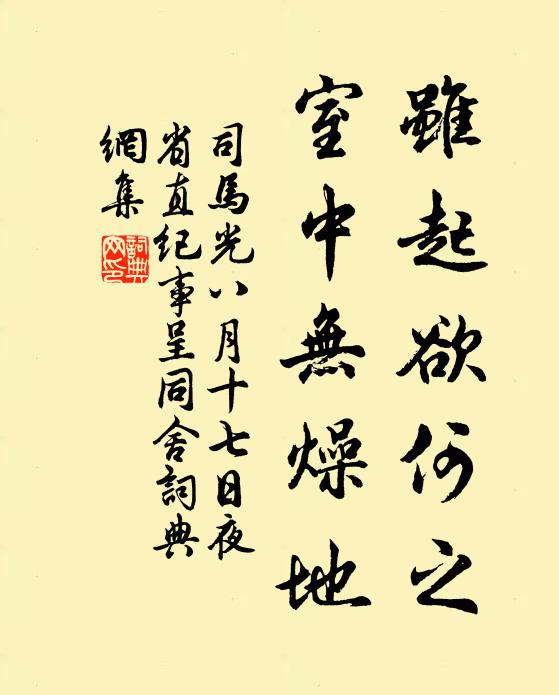 雖起欲何之
室中無燥地
司馬光八月十七日夜
省直纪事呈同舍詞典
網集
詞典網印